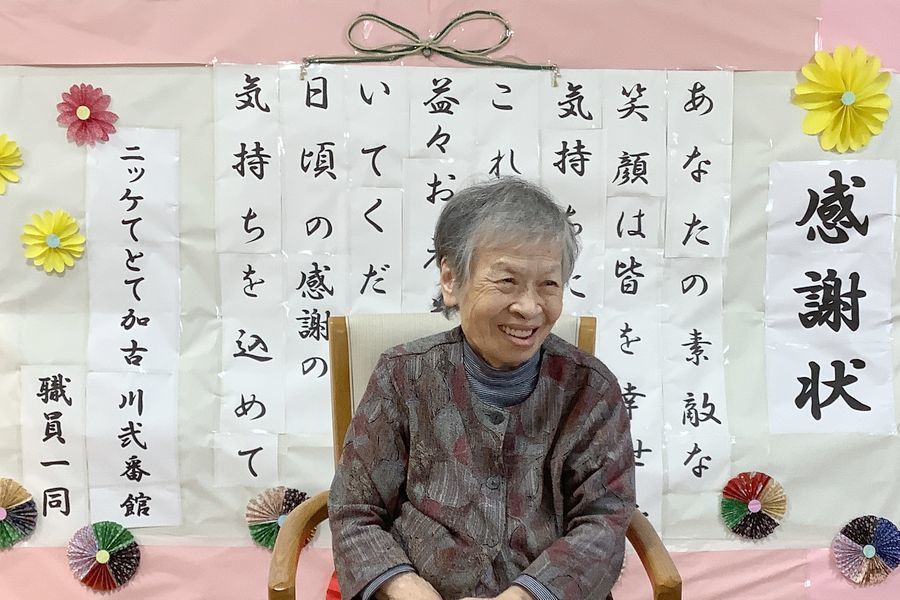 感謝状
あなたの素敵な
笑顔は皆を幸せ
気持
これ
益々お
いてくだ
日頃の感謝の
気持ちを込めて
ニッケてとて加古川弐番館
職員一同